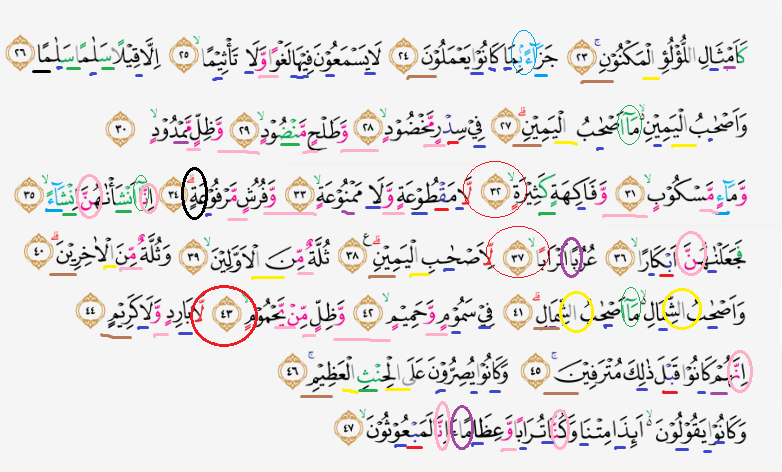 كَاَمْثَالِ اللُّؤْلُؤِ الْمَكْنُوْنِۚ ٢٣ جَزَاۤءًۢ بِمَا كَانُوْا يَعْمَلُوْنَ ٢٤ لَا يَسْمَعُوْنَ فِيْهَا لَغْوًا وَّلَا تَأْثِيْمًاۙ ٢٥ اِلَّا قِيْلًا سَلٰمًا سَلٰمًا ٢٦
وَاَصْحٰبُ الْيَمِيْنِ ەۙ مَآ اَصْحٰبُ الْيَمِيْنِۗ ٢٧ فِيْ سِدْرٍ مَّخْضُوْدٍۙ ٢٨ وَّطَلْحٍ مَّنْضُوْدٍۙ ٢٩ وَّظِلٍّ مَّمْدُوْدٍۙ ٣٠
وَّمَاۤءٍ مَّسْكُوْبٍۙ ٣١ وَّفَاكِهَةٍ كَثِيْرَةٍۙ ٣٢ لَّا مَقْطُوْعَةٍ وَّلَا مَمْنُوْعَةٍۙ ٣٣ وَّفُرُشٍ مَّرْفُوْعَةٍۗ ٣٤ اِنَّآ اَنْشَأْنٰهُنَّ اِنْشَاۤءًۙ ٣٥
فَجَعَلْنٰهُنَّ اَبْكَارًاۙ ٣٦ عُرُبًا اَتْرَابًاۙ ٣٧ لِّاَصْحٰبِ الْيَمِيْنِۗ ࣖ ٣٨ ثُلَّةٌ مِّنَ الْاَوَّلِيْنَۙ ٣٩ وَثُلَّةٌ مِّنَ الْاٰخِرِيْنَۗ ٤٠
وَاَصْحٰبُ الشِّمَالِ ەۙ مَآ اَصْحٰبُ الشِّمَالِۗ ٤١ فِيْ سَمُوْمٍ وَّحَمِيْمٍۙ ٤٢ وَّظِلٍّ مِّنْ يَّحْمُوْمٍۙ ٤٣ لَّا بَارِدٍ وَّلَا كَرِيْمٍ ٤٤
اِنَّهُمْ كَانُوْا قَبْلَ ذٰلِكَ مُتْرَفِيْنَۚ ٤٥ وَكَانُوْا يُصِرُّوْنَ عَلَى الْحِنْثِ الْعَظِيْمِۚ ٤٦
وَكَانُوْا يَقُوْلُوْنَ ەۙ اَىِٕذَا مِتْنَا وَكُنَّا تُرَابًا وَّعِظَامًا ءَاِنَّا لَمَبْعُوْثُوْنَۙ ٤٧